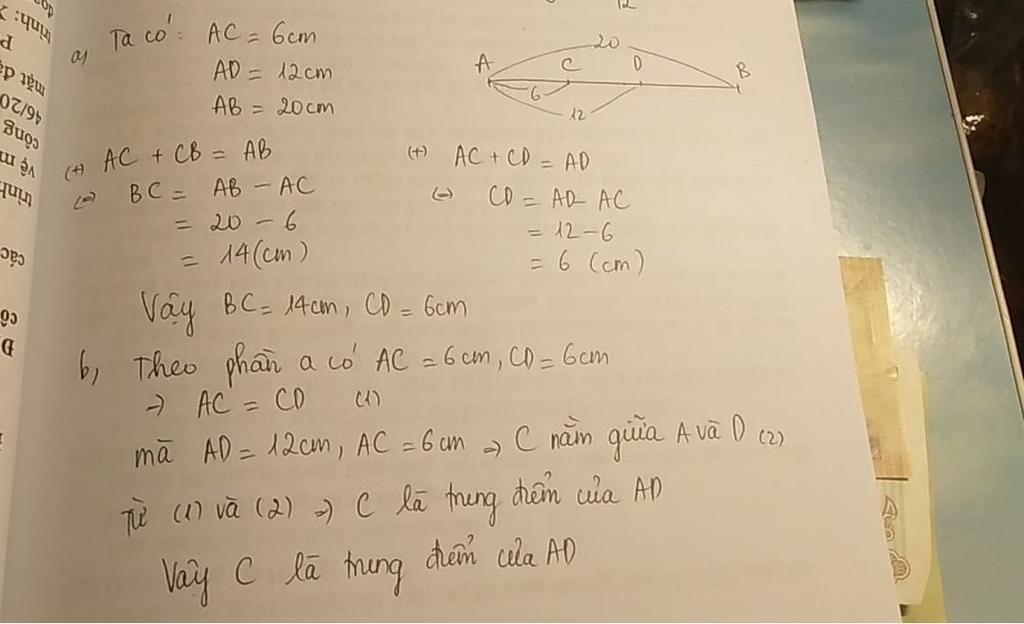 12
a) Ta có: AC = 6cm
AD = 12cm
AB = 20cm
20
A C D B
6
12
(+) AC + CB = AB
(=) BC = AB - AC
= 20 - 6
= 14 (cm)
(+) AC + CD = AD
(=) CD = AD - AC
= 12 - 6
= 6 (cm)
Vậy BC = 14cm, CD = 6cm
b, Theo phần a có AC = 6cm, CD = 6cm
=> AC = CD (1)
mà AD = 12cm, AC = 6cm => C nằm giữa A và D (2)
Từ (1) và (2) => C là trung điểm của AD
Vậy C là trung điểm của AD
trình:
mặt
46/20
công
vệ m
trình
các